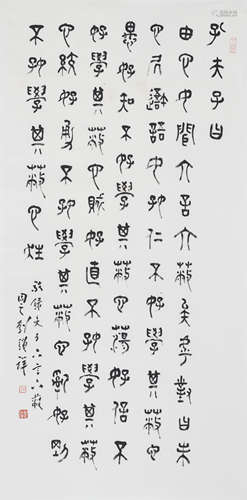 孔夫子曰
由也女聞六言六蔽矣乎對曰未
也居吾語女好仁不好學其蔽也
愚好知不好學其蔽也蕩好信不
好學其蔽也賊好直不好學其蔽
也絞好勇不好學其蔽也亂好剛
不好學其蔽也狂
敬錄夫子六言六蔽
劉